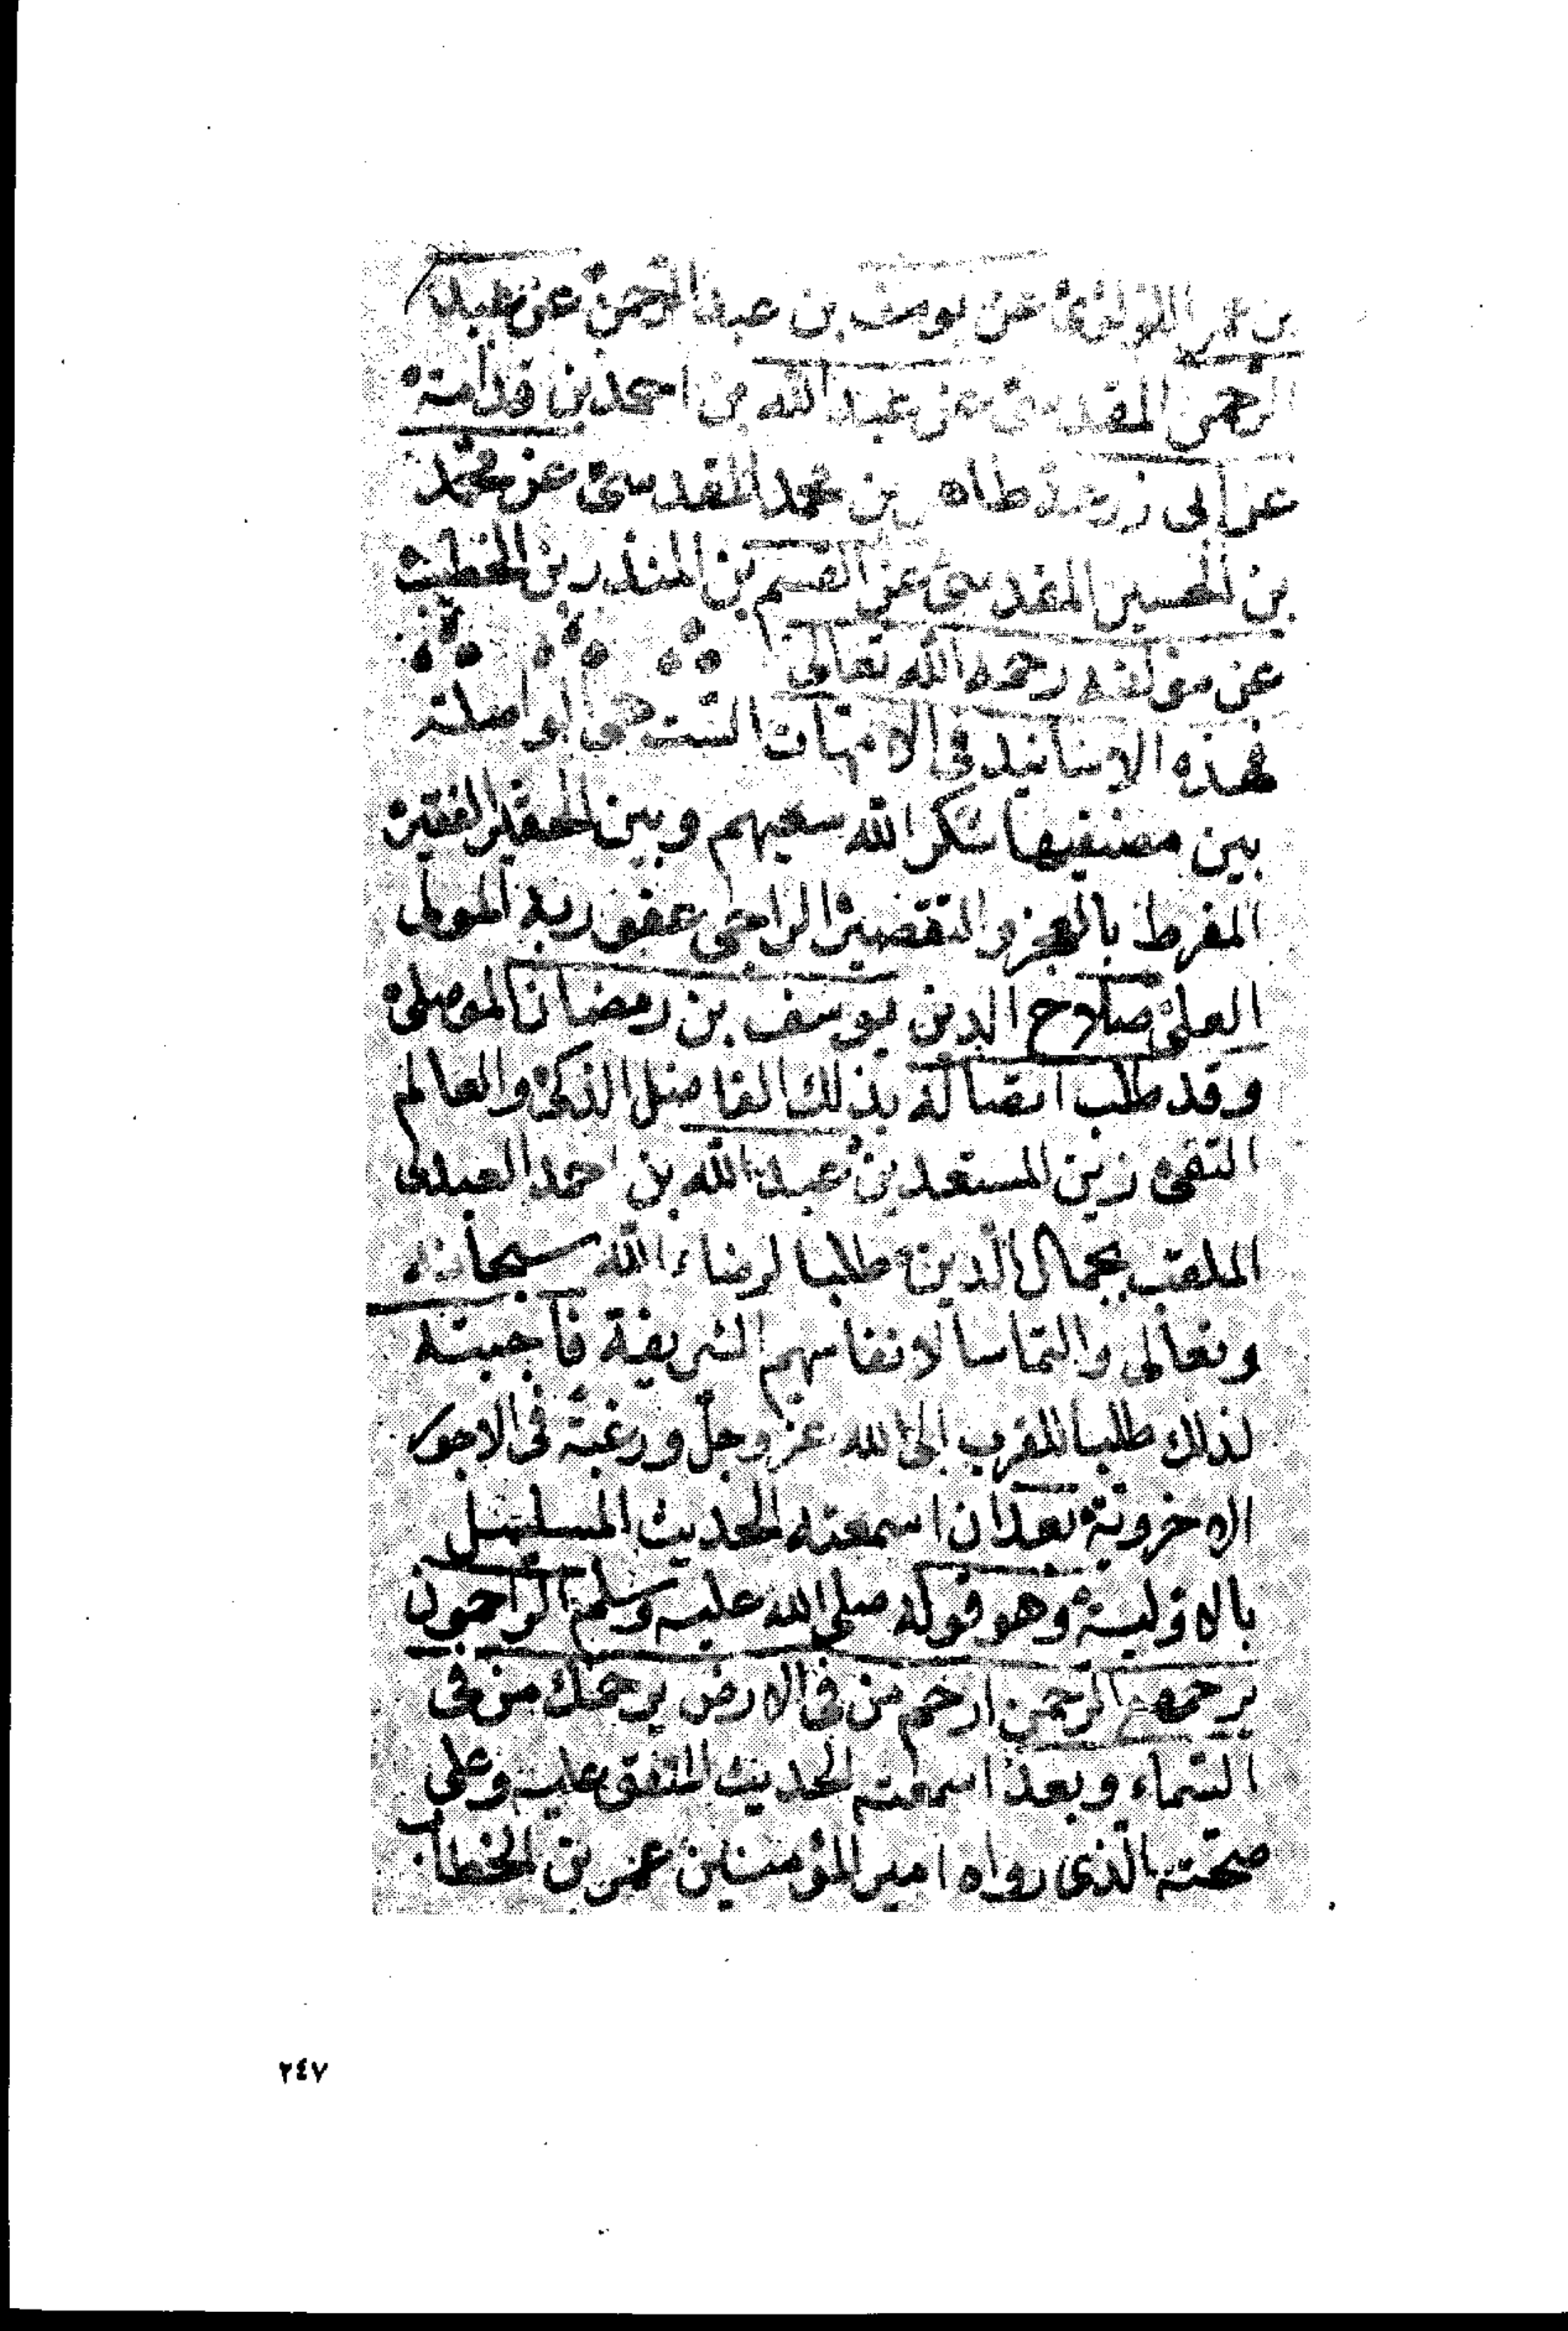 بن عمر اللؤلؤى عن يوسف بن عبد الرحمن عن عبد
الرحمن المقدسى عن عبد الله بن احمد بن قدامة
عن ابى زرعة طاهر بن محمد المقدسى عن محمد
بن الحسين المقدسى عن القسم بن المنذر بن الخطيب
عن مؤلفه رحمه الله تعالى
فهذه الاسانيد فى الامهات الست هى الواصلة
بين مصنفيها شكر الله سعيهم وبين الحقير الفقير
المفرط بالعجز والتقصير الراجى عفو ربه المولى
العلى صلاح الدين يوسف بن رمضان الموصلى
وقد طلب اتصاله بذلك الفاضل الذكى والعالم
التقى زين المستعدين عبد الله بن احمد العبدلى
الملقب بجمال الدين طلبا لرضاء الله سبحانه
وتعالى والتماسا لانفاسهم الشريفة فأجبته
لذلك طلبا للقرب الى الله عز وجل ورغبة فى الاجور
الاخروية بعد ان اسمعته الحديث المسلسل
بالاولية وهو قوله صلى الله عليه وسلم الراحمون
يرحمهم الرحمن ارحم من فى الارض يرحمك من فى
السماء وبعد اسمعته الحديث المتفق عليه وعلى
صحته الذى رواه امير المؤمنين عمر بن الخطاب
٢٤٧